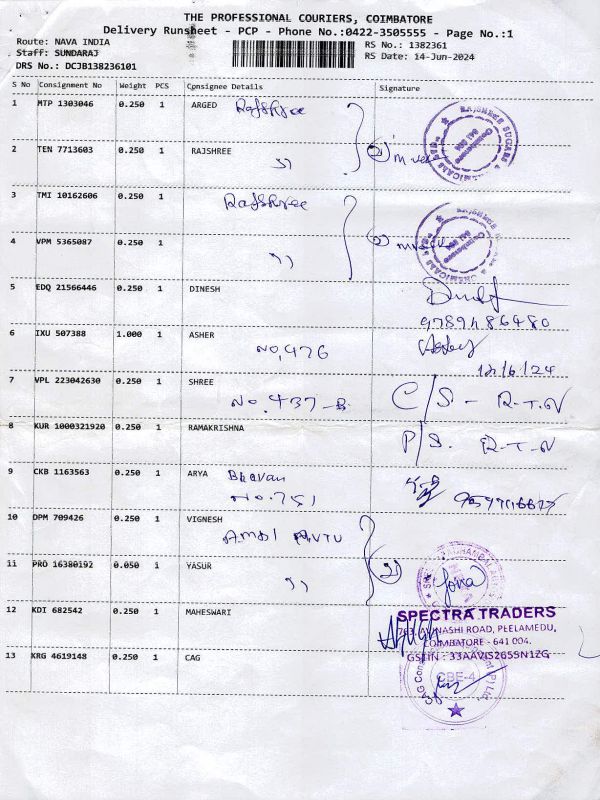 THE PROFESSIONAL COURIERS, COIMBATORE
Delivery Runsheet - PCP - Phone No.:0422-3505555 - Page No.:1
Route: NAVA INDIA
Staff: SUNDARAJ
DRS No.: DCJB138236101
RS No.: 1382361
RS Date: 14-Jun-2024
S No Consignment No Weight PCS Consignee Details Signature
1 MTP 1303046 0.250 1 ARGED Rajshree
2 TEN 7713603 0.250 1 RAJSHREE
3 TMI 10162606 0.250 1 Rajshree
4 VPM 5365087 0.250 1
5 EDQ 21566446 0.250 1 DINESH
9789486480
6 IXU 507388 1.000 1 ASHER
NO,476
12/6/24
7 VPL 223042630 0.250 1 SHREE
NO.437-B C/S - R-T-N
8 KUR 1000321920 0.250 1 RAMAKRISHNA
P/S. R-T-N
9 CKB 1163563 0.250 1 ARYA Bhavan
NO.751
10 DPM 709426 0.250 1 VIGNESH
11 PRO 16380192 0.050 1 YASUR
12 KDI 682542 0.250 1 MAHESWARI
SPECTRA TRADERS
AVINASHI ROAD, PEELAMEDU,
COIMBATORE - 641 004.
GSTIN : 33AAVIS2655N1ZG
13 KRG 4619148 0.250 1 CAG
CBE-4